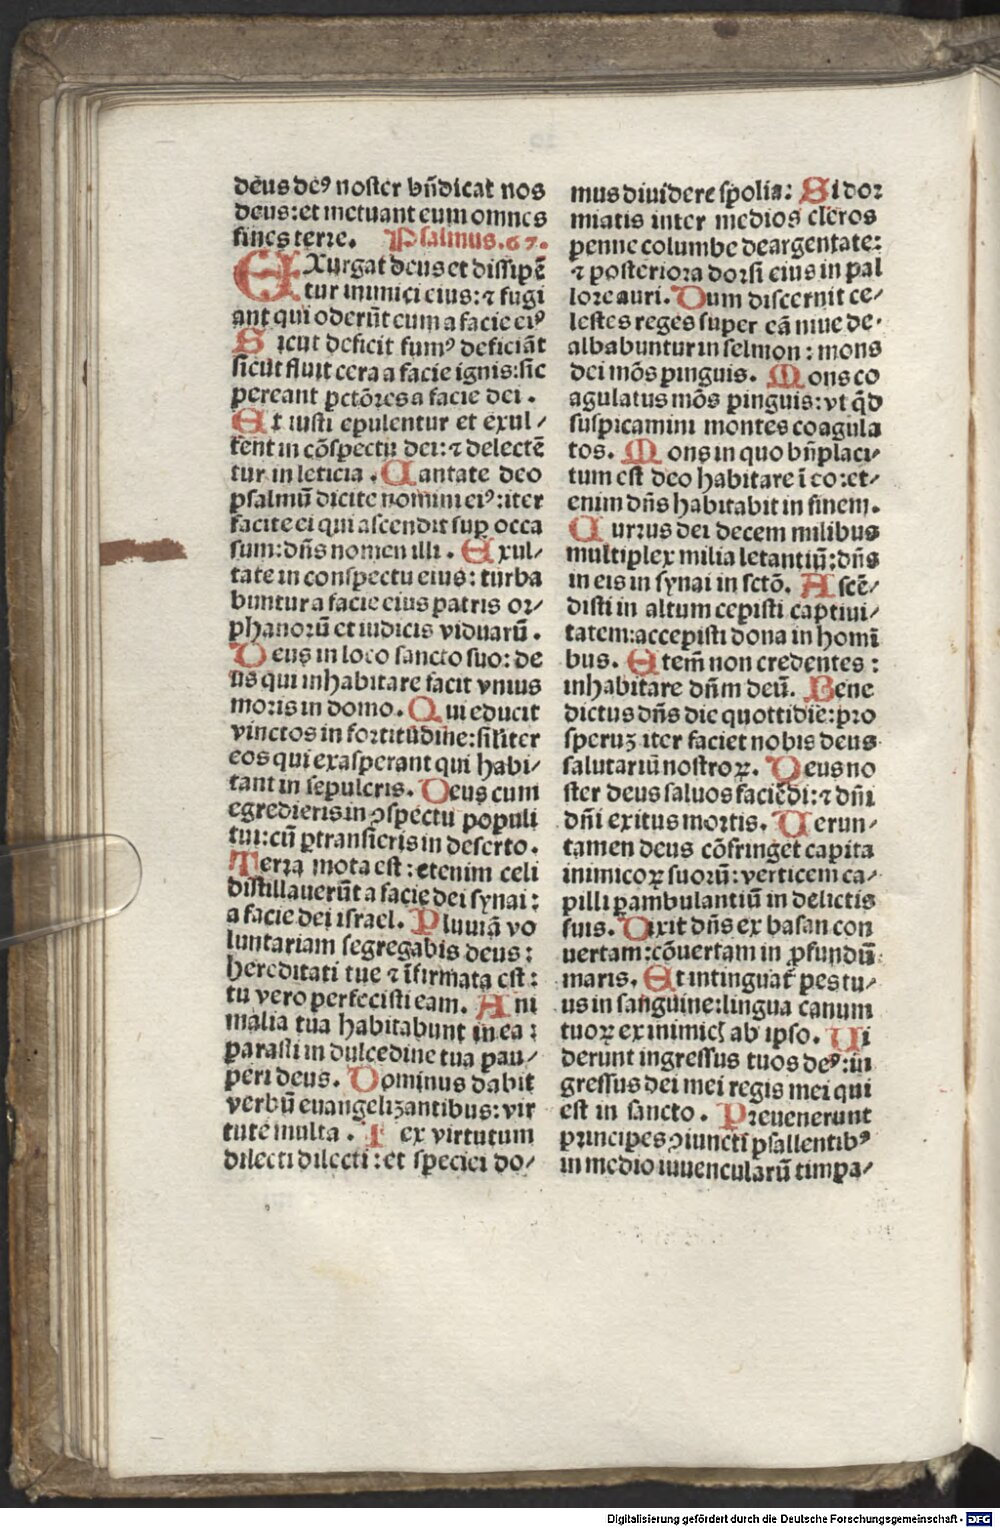 deus deꝰ noster bn̄dicat nos
deus: et metuant eum omnes
fines terre. Psalmus.67.
EXurgat deus et dissipē
tur inimici eius: ⁊ fugi
ant qui oderūt eum a facie eiꝰ
Sicut deficit fumꝰ deficiāt
sicut fluit cera a facie ignis: sic
pereant pctōres a facie dei.
Et iusti epulentur et exul⸗
tent in cōspectu dei: ⁊ delectē
tur in leticia. Cantate deo
psalmū dicite nomini eiꝰ: iter
facite ei qui ascendit suꝑ occa
sum: dn̄s nomen illi. Exul⸗
tate in conspectu eius: turba
buntur a facie eius patris or⸗
phanorū et iudicis viduarū.
Deus in loco sancto suo: de
us qui inhabitare facit vnius
moris in domo. Qui educit
vinctos in fortitudine: siliter
eos qui exasperant qui habi⸗
tant in sepulcris. Deus cum
egredieris in ꝯspectu populi
tui: cū ꝑtransieris in deserto.
Terra mota est: etenim celi
distillauerūt a facie dei synai:
a facie dei israel. Pluuiā vo
luntariam segregabis deus:
hereditati tue ⁊ īfirmata est:
tu vero perfecisti eam. Ani
malia tua habitabunt in ea:
parasti in dulcedine tua pau⸗
peri deus. Dominus dabit
verbū euangelizantibus: vir
tute multa. Rex virtutum
dilecti dilecti: et speciei do⸗
mus diuidere spolia: Si dor
miatis inter medios cleros
penne columbe deargentate:
⁊ posteriora dorsi eius in pal
lore auri. Dum discernit ce⸗
lestes reges super eā niue de⸗
albabuntur in selmon: mons
dei mōs pinguis. Mons co
agulatus mōs pinguis: vt qd
suspicamini montes coagula
tos. Mons in quo bn̄placi⸗
tum est deo habitare ī eo: et⸗
enim dn̄s habitabit in finem.
Currus dei decem milibus
multiplex milia letantiū: dn̄s
in eis in synai in sctō. Ascē⸗
disti in altum cepisti captiui⸗
tatem: accepisti dona in homī
bus. Etem̄ non credentes:
inhabitare dn̄m deū. Bene
dictus dn̄s die quottidie: pro
sperum iter faciet nobis deus
salutariū nostroꝝ. Deus no
ster deus saluos faciēdi: ⁊ dn̄i
dn̄i exitus mortis. Uerun⸗
tamen deus cōfringet capita
inimicoꝝ suorū: verticem ca⸗
pilli ꝑambulantiū in delictis
suis. Dixit dn̄s ex basan con
uertam: cōuertam in ꝓfundū
maris. Et intinguat̄ pes tu⸗
us in sanguine: lingua canum
tuoꝝ ex inimicꝭ ab ipso. Ui
derunt ingressus tuos deꝰ: in
gressus dei mei regis mei qui
est in sancto. Preuenerunt
principes ꝯiuncti psallentibꝰ
in medio iuuencularū timpa⸗
Digitalisierung gefördert durch die Deutsche Forschungsgemeinschaft - DFG